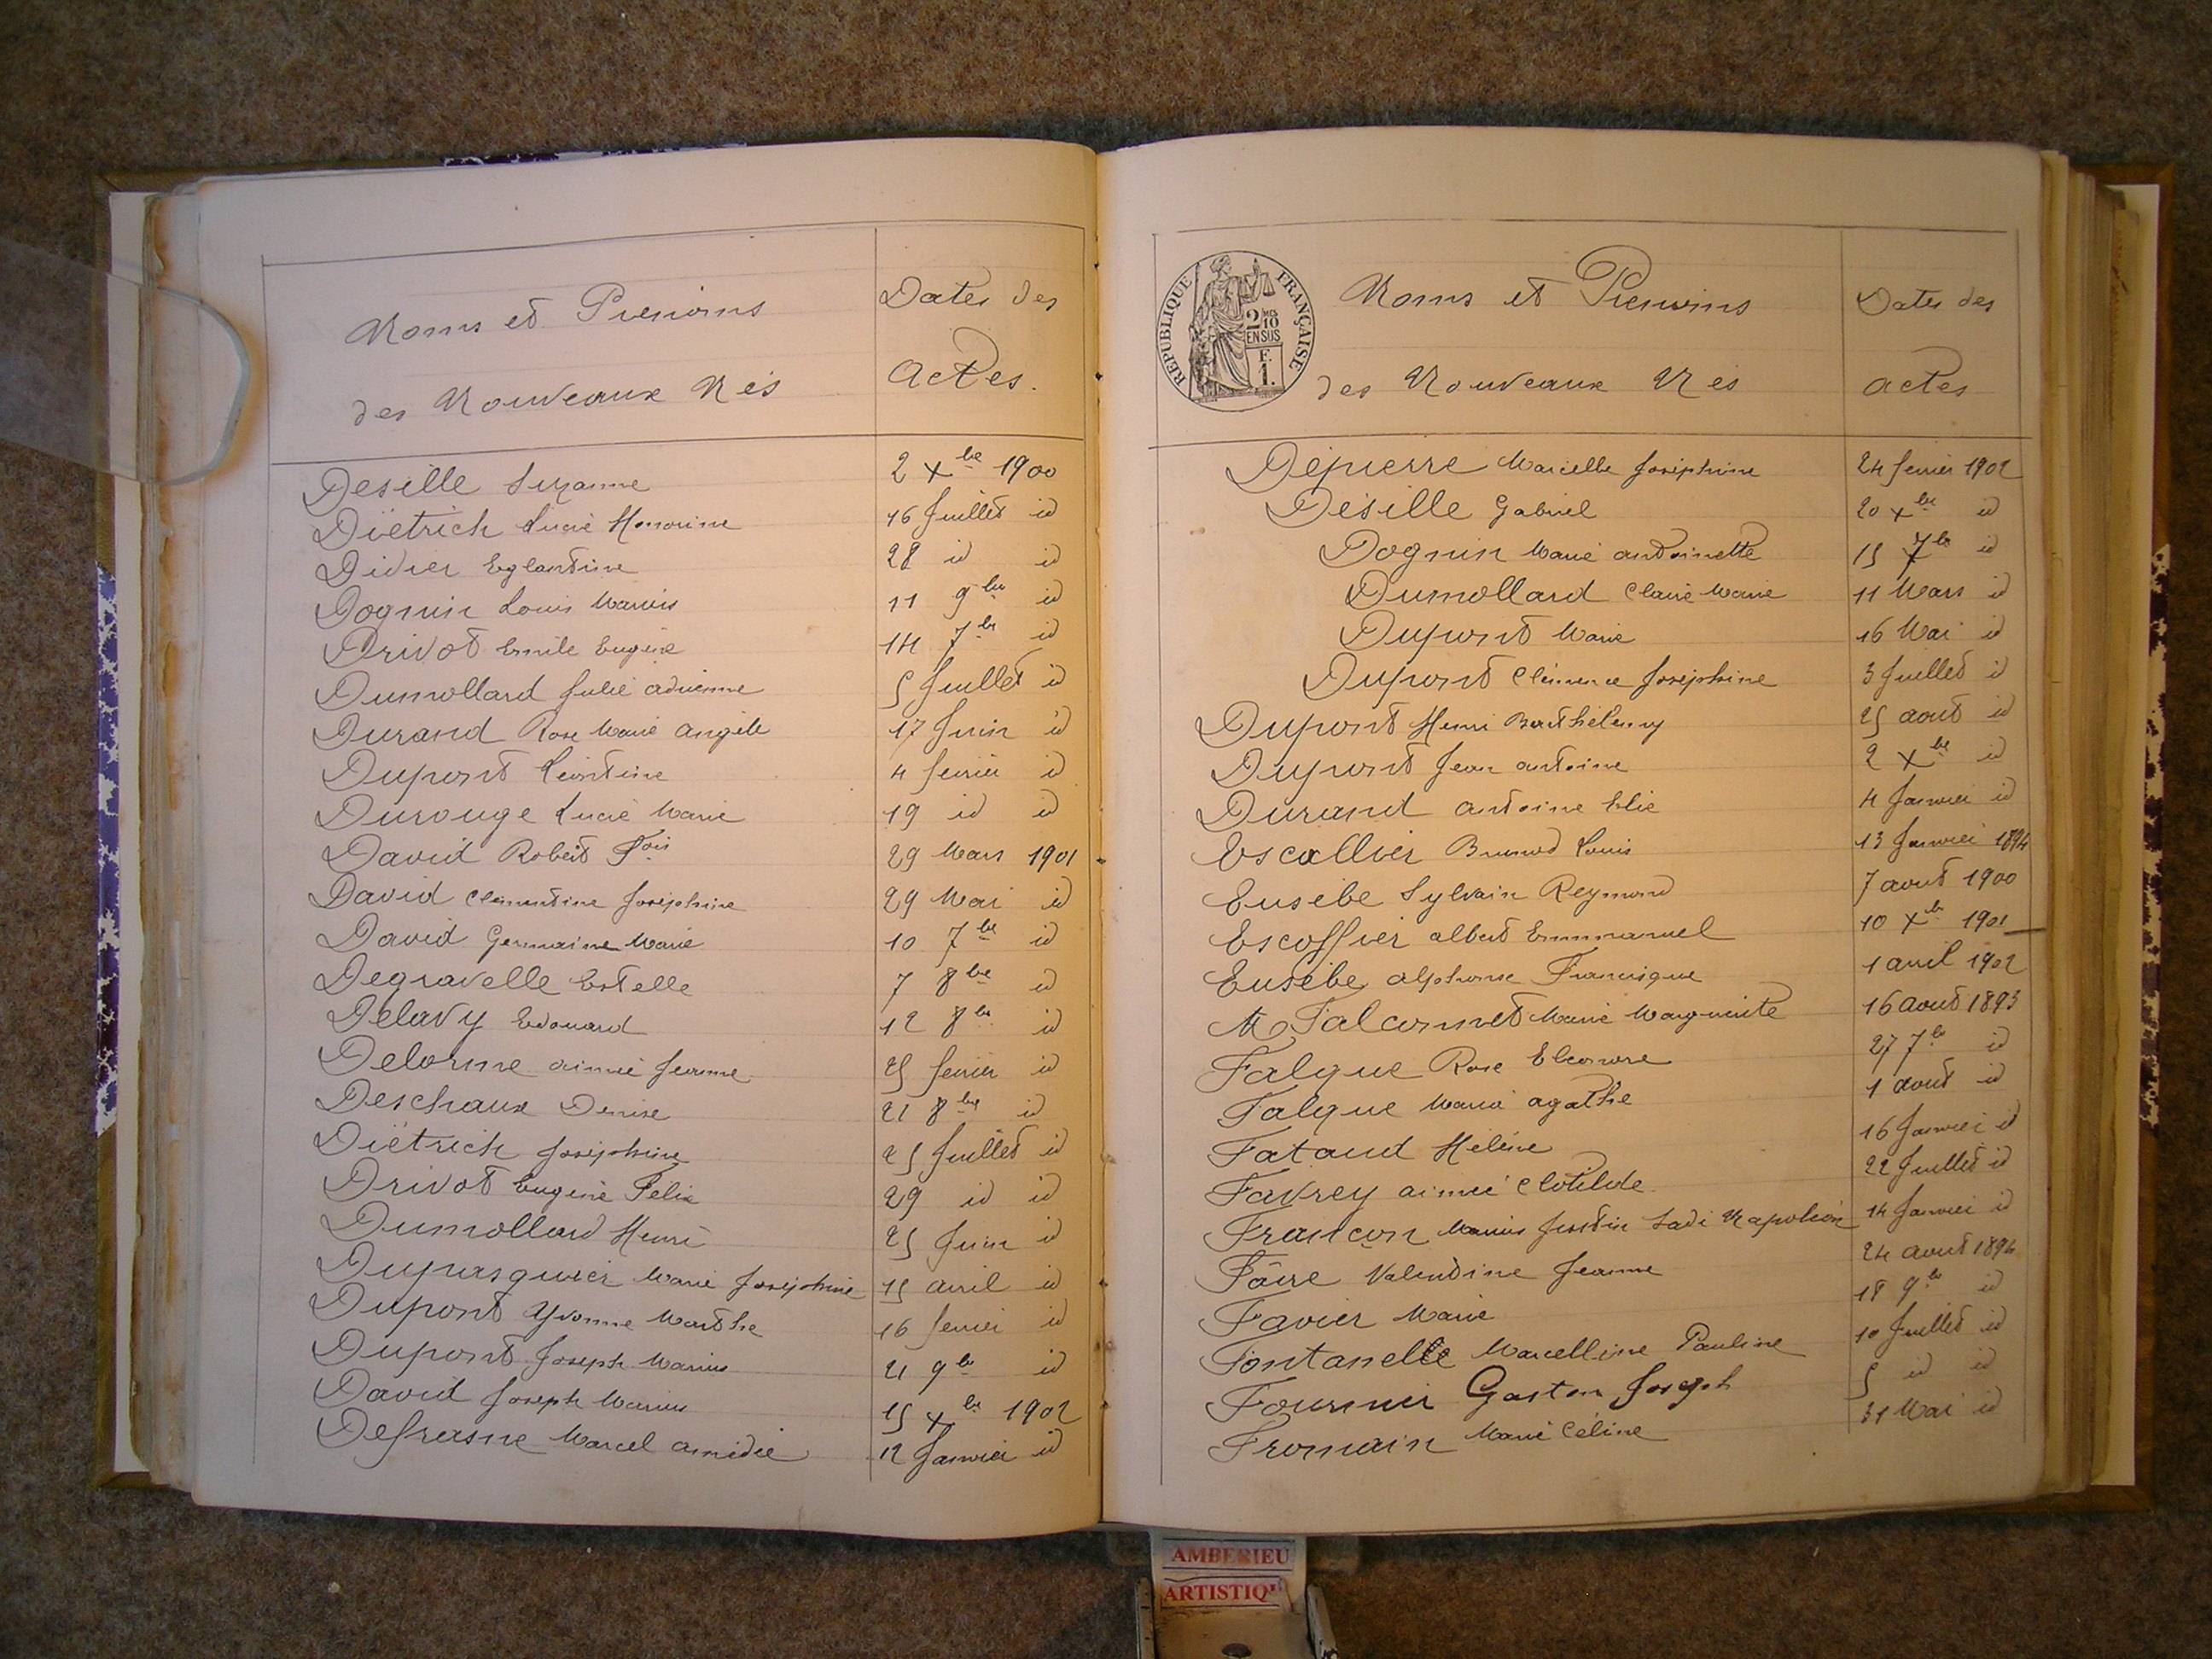 Noms et Prénoms
des Nouveaux Nés
Dates des
Actes.
Désille Suzanne 2 Xbe 1900
Diétrich Lucie Honorine 16 Juillet id
Didier Eglantine 28 id id
Dognin Louis Marius 11 9bre id
Drivot Emile Eugène 14 7bre id
Dumollard Julie Adrienne 5 Juillet id
Durand Rose Marie Angèle 17 Juin id
Dupont Léontine 4 février id
Durouge Lucie Marie 19 id id
David Robert Fois 29 Mars 1901
David Clémentine Joséphine 29 Mai id
David Germaine Marie 10 7bre id
Degravelle Estelle 7 8bre id
Delavy Edouard 12 8bre id
Delorme aimée Jeanne 25 février id
Deschaux Denise 21 8bre id
Diétrich Joséphine 25 Juillet id
Drivot Eugène Félix 29 id id
Dumollard Henri 25 Juin id
Dupasquier Marie Joséphine 15 avril id
Dupont Yvonne Marthe 16 fevrier id
Dupont Joseph Marius 21 9bre id
David Joseph Marius 15 Xbre 1902
Defrasne Marcel amédée 12 Janvier id
RÉPUBLIQUE FRANÇAISE
2/10 EN SUS
F. 1.
Noms et Prénoms
des Nouveaux Nés
Dates des
actes
Dépierre Marcelle Joséphine 24 fevrier 1902
Désille Gabriel 20 Xbre id
Dognin Marie antoinette 15 7bre id
Dumollard Claire Marie 11 Mars id
Dupont Marie 16 Mai id
Dupont Clémence Joséphine 3 Juillet id
Dupont Henri Barthélemy 25 aout id
Dupont Jean antoine 2 Xbre id
Durand antoine Elie 4 Janvier id
Escallier Brunod Louis 13 Janvier 1894
Eusèbe Sylvain Reymond 7 aout 1900
Escoffier albert Emmanuel 10 Xbre 1901
Eusèbe alphonse Francisque 1 avril 1902
Falconnet Marie Marguerite 16 aout 1893
Falque Rose Eléonore 27 7bre id
Falque Maria agathe 1 aout id
Fataud Hélène 16 Janvier id
Favrey aimée Clotilde 22 Juillet id
Françon Marius Justin Sadi Napoléon 14 Janvier id
Faure Valentine Jeanne 24 aout 1894
Favier Marie 18 9bre id
Fontanelle Marcelline Pauline 10 Juillet id
Fournier Gaston Joseph 5 id id
Fromain Marie Céline 31 Mai id
AMBERIEU
ARTISTIQ